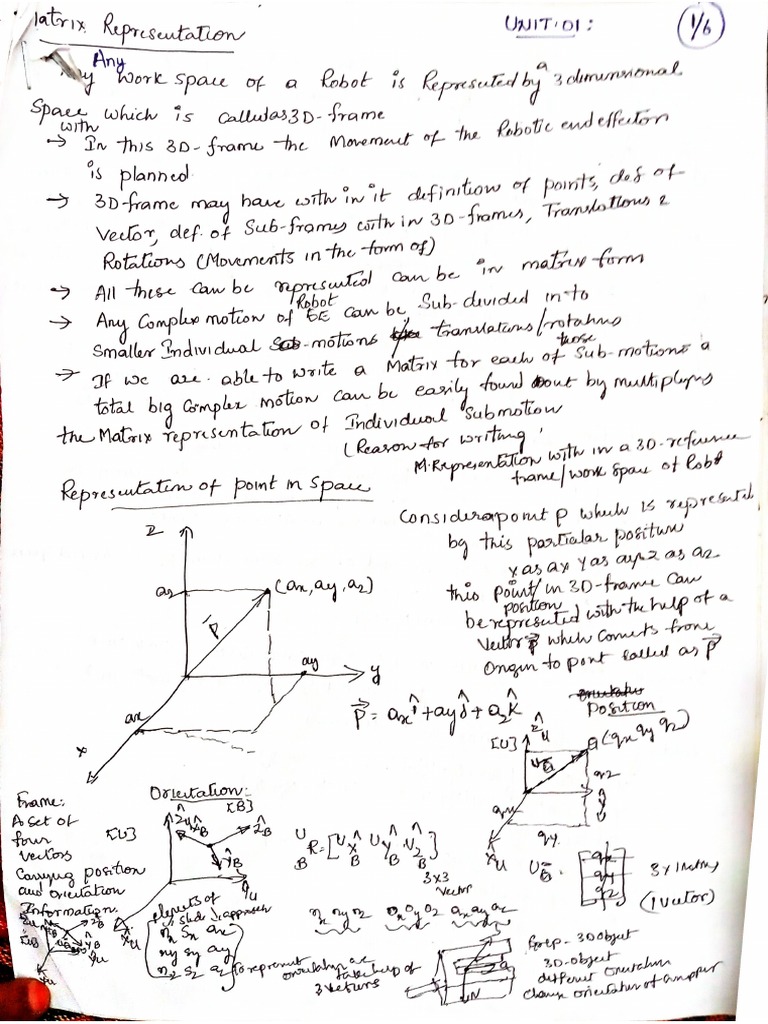 Matrix Representation
UNIT:01:
1/6
Any
Any work space of a Robot is Represented by a 3 dimensional
Space which is called as 3D-frame
with
→ In this 3D-frame the Movement of the Robotic end effector
is planned
→ 3D-frame may have with in it definition of points, def of
Vector, def. of Sub-frames with in 3D-frames, Translations &
Rotations (Movements in the form of)
→ All these can be represented can be in matrix form
Robot
→ Any Complex motion of EE can be Sub-divided in to
Smaller Individual Sub-motions translations/rotations
→ If we are able to write a Matrix for each of those Sub-motions a
total big Complex motion can be easily found out by multiplying
the Matrix representation of Individual Submotion
(Reason for writing
M.Representation with in a 3D-reference
frame/work space of Robot
Representation of point in Space
Consider a point P which is represented
by this particular position
x as ax y as ay z as az
this point/in 3D-frame can
position
be represented with the help of a
Vector P⃗ which connects from
Origin to point called as P⃗
Z
az
(ax, ay, az)
P⃗
ay
y
ax
x
P⃗ = ax î + ay ĵ + az k̂
Position
[U]
Ẑu
Q(qx qy qz)
UQ̄
qz
qx
qy
X̂u
UQ̄ = [qx qy qz]
3 x 1 matrix
(1 Vector)
Frame:
A set of
four
vectors
Carrying position
and orientation
Information.
Orientation:
[B]
[U]
Ẑu
X̂B
ẐB
ŶB
ŷu
X̂u
U B R = [U X̂ B U Ŷ B U Ẑ B]
3x3
Vector
nx ny nz
ox oy oz
ax ay az
elements of
slide approach
nx sx ax
ny sy ay
nz sz az
to represent
orientation we
take help of
3 vectors
3D object
3D-object
different orientation
change orientation of